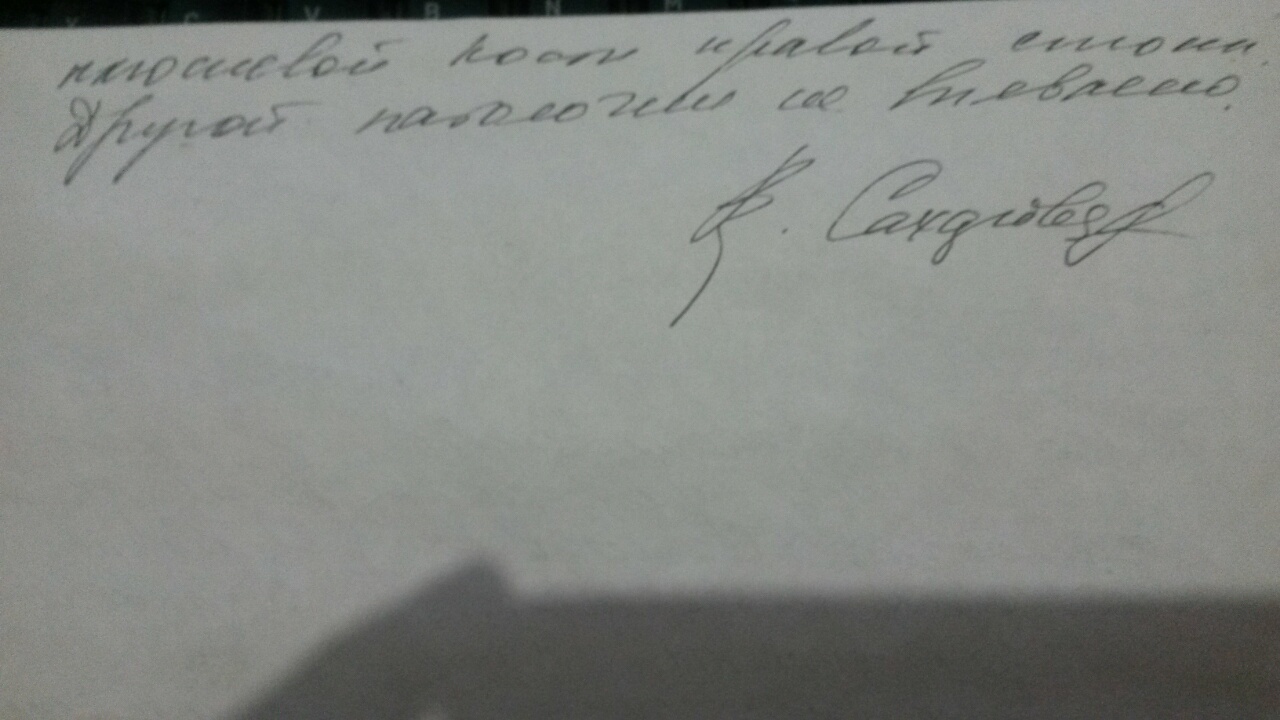 плюсневой кости правой стопы.
Другой патологии не выявлено.
В.